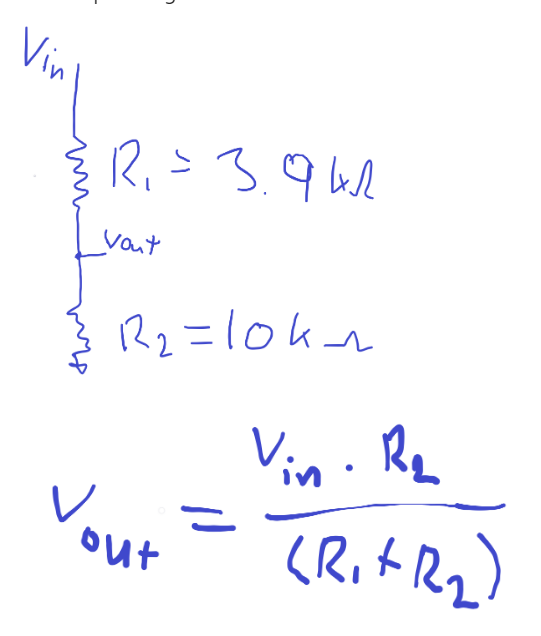 Vin
R₁ = 3.9 kΩ
Vout
R₂ = 10 k Ω
Vout = Vin · R₂ / (R₁ + R₂)